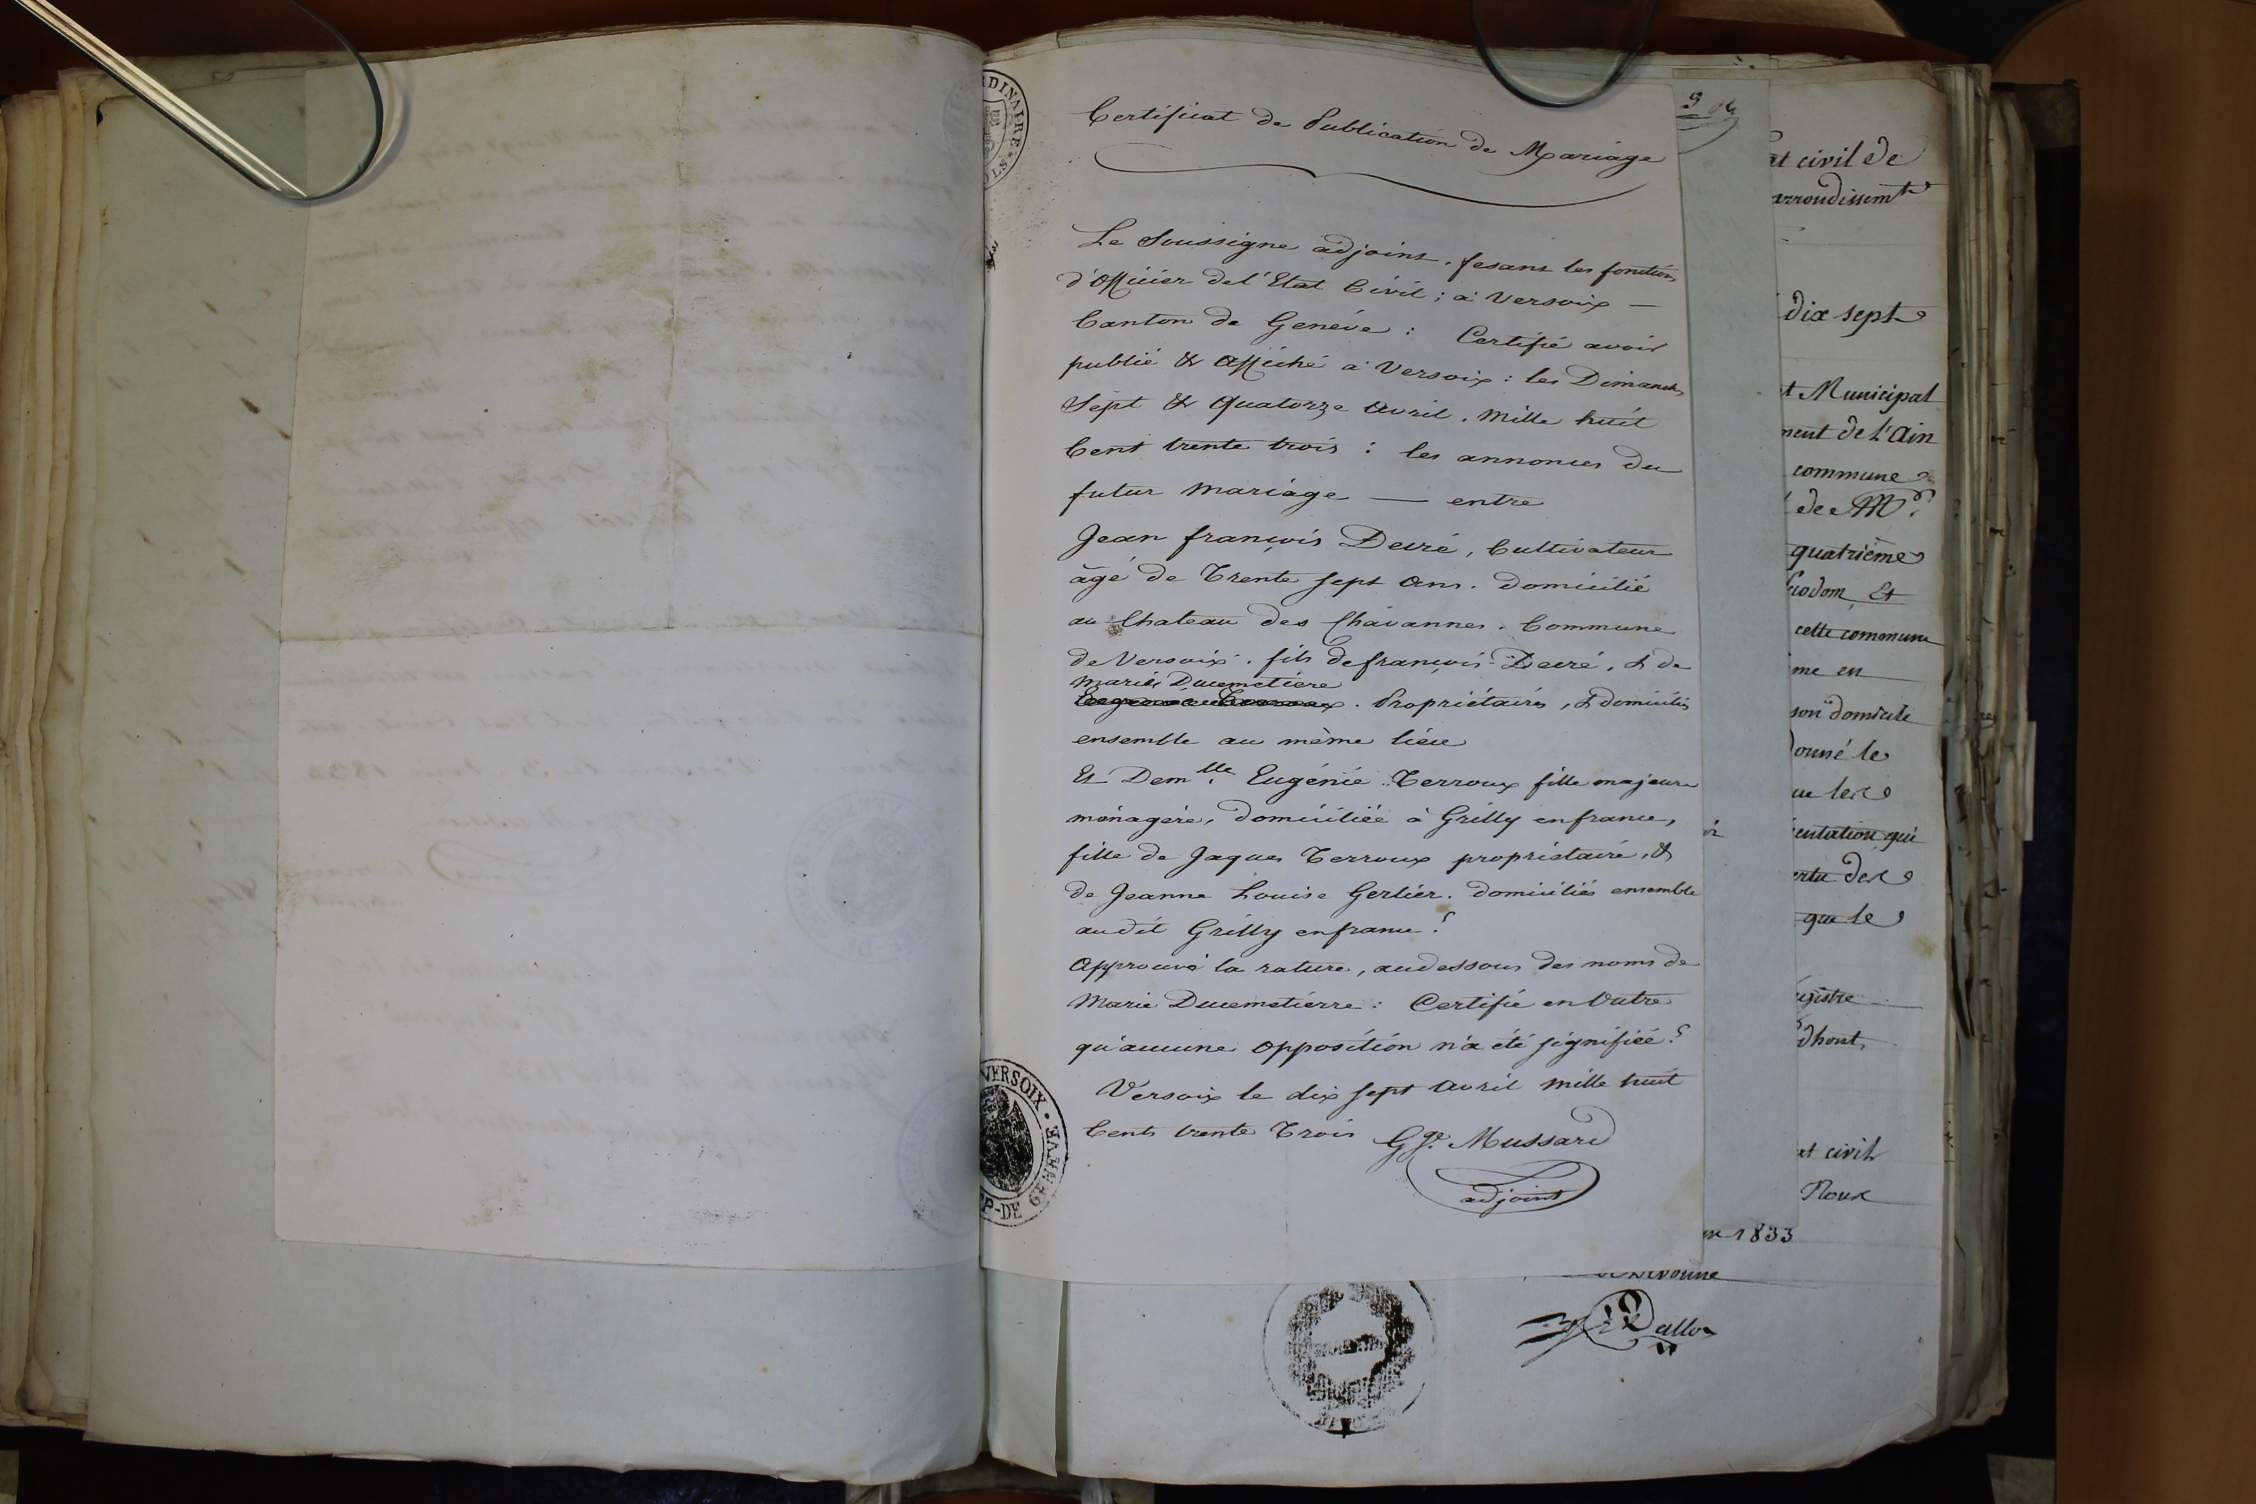 Certificat de Publication de Mariage
Le Soussigne adjoint, fesant les fonction
d'Officier de l'Etat Civil; à Versoix —
Canton de Genève : Certifié avoir
publié & Affiché à Versoix : les Dimanch
Sept & Quatorze Avril, Mille huit
Cent trente trois : les annonces du
futur Mariage — entre
Jean françois Decré, Cultivateur
âgé de Trente sept Ans. Domicilié
au Chateau des Chavannes. Commune
de Versoix. fils de françois Decré, & de
Marie Ducemetiere
. Propriétaires, & domiciliés
ensemble au même lieu
Et Demlle Eugénie Terroux fille majeure
ménagère, Domiciliée à Grilly en france,
fille de Jaques Terroux propriétaire, &
de Jeanne Louise Gerlier. domiciliés ensemble
au dit Grilly en france.
Approuvé la rature, au dessous des noms de
Marie Ducemetierre : Certifie en Outre
qu'aucune Opposition n'a été signifiée.
Versoix le dix sept Avril Mille huit
Cents trente Trois Gge. Mussard
adjoint
RDINAIRE
VERSOIX · GENEVE
P-DE
at civil de
arrondissemt
dix sept
t Municipal
ment de l'Ain
commune
de Mr
quatrième
cette commune
me en
son domicile
donné le
ue les
entation qui
ertu des
que le
egistre
dhont,
at civil
Roux
1833
Divonne